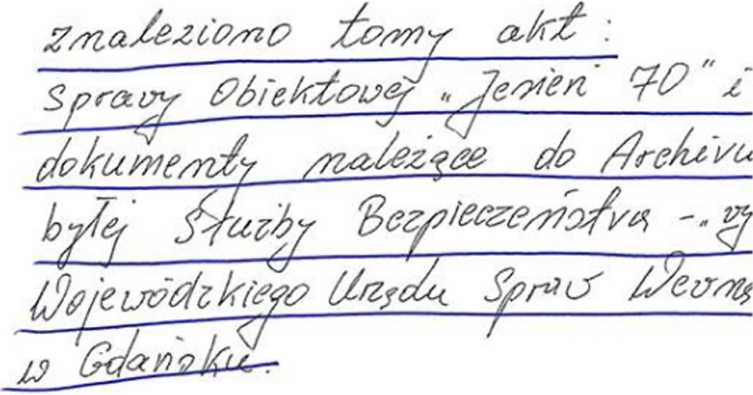 znaleziono tomy akt:
Sprawy Obiektowej „Jesień 70” i
dokumenty należące do Archivu
byłej Służby Bezpieczeństwa - „wy
Wojewódzkiego Urzędu Spraw Wewnę
w Gdańsku.